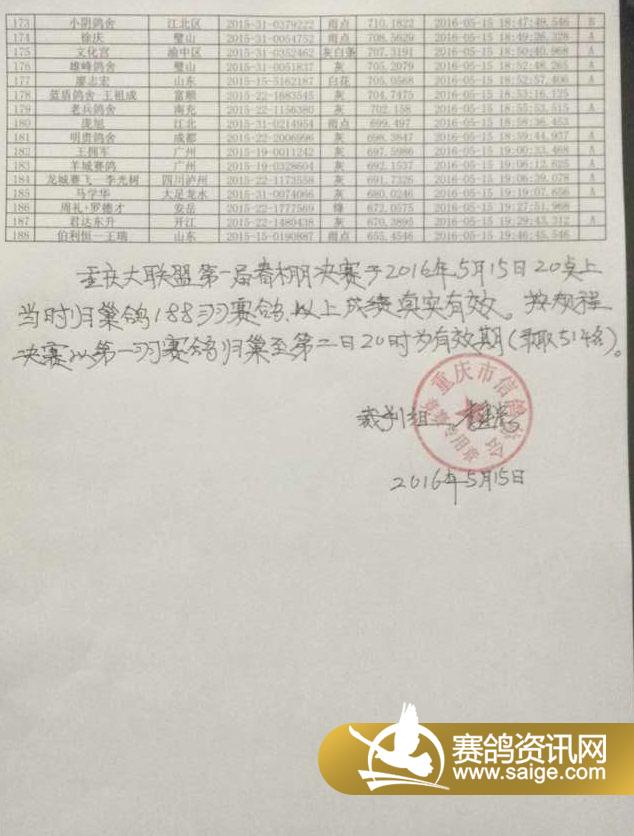 173 小阴鸽舍 江北区 2015-31-0379222 雨点 710.1822 2016-05-15 18:47:49.546 B
174 徐庆 璧山 2015-31-0054752 雨点 708.5629 2016-05-15 18:49:26.328 A
175 文化宫 渝中区 2015-31-0352462 灰白条 707.3191 2016-05-15 18:50:40.968 A
176 雄峰鸽舍 璧山 2015-31-0051837 灰 705.2079 2016-05-15 18:52:48.265 A
177 廖志宏 山东 2015-15-5162187 白花 705.0568 2016-05-15 18:52:57.406 A
178 蓝盾鸽舍-王祖成 富顺 2015-22-1683545 灰 704.7475 2016-05-15 18:53:16.125
179 老兵鸽舍 南充 2015-22-1156380 灰 702.158 2016-05-15 18:55:53.515 A
180 庞旭 江北 2015-31-0214954 雨点 699.497 2016-05-15 18:58:36.453
181 明贵鸽舍 成都 2015-22-2006996 灰 698.3847 2016-05-15 18:59:44.937 A
182 王拥军 广州 2015-19-0011242 灰 697.5986 2016-05-15 19:00:33.468 A
183 羊城赛鸽 广州 2015-19-0328604 灰 692.1537 2016-05-15 19:06:12.625 A
184 龙城赛飞-李光树 四川泸州 2015-22-1173558 灰 691.7326 2016-05-15 19:06:39.078 A
185 马学华 大足龙水 2015-31-0074066 灰 680.0246 2016-05-15 19:19:07.656 A
186 周礼+罗德才 安岳 2015-22-1777569 绛 672.0575 2016-05-15 19:27:51.968
187 君达东升 开江 2015-22-1480438 灰 670.3895 2016-05-15 19:29:43.312 A
188 伯利恒-王瑞 山东 2015-15-0190887 雨点 655.4546 2016-05-15 19:46:45.546
重庆大联盟第一届春棚决赛于2016年5月15日20点止
当时归巢鸽188羽赛鸽、以上成绩真实有效。按规程
决赛以第一羽赛鸽归巢至第二日20时为有效期(录取514名)。
重庆市信鸽协会
竞赛专用章
裁判组
2016年5月15日
赛鸽资讯网
www.saige.com